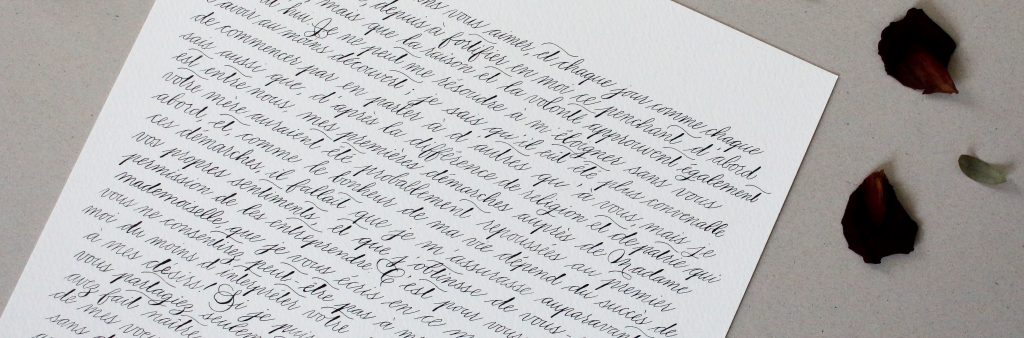 ns vous aimer, et chaque jour comme chaque
, depuis à fortifier en moi ce penchant d'abord
mais que la raison et la volonté approuvent également
t'hui. Je ne peut me résoudre à m'éloigner sans vous
l'avoir au moins découvert; je sais qu'il eut été plus convenable
de commencer par en parler à d'autres qu', à vous mais je
sais aussi que, d'après la différence de religion et de patrie qui
est entre nous mes premières démarches auprès de Madame
votre mère auraient été probablement repoussées au premier
abord, et comme le bonheur de ma vie dépend du succès de
ces démarches, il fallait que je m'assurasse auparavant
vos propres sentiments et que j'obtense de vous-
permission de les entreprendre C'est pour vous
mademoiselle, que je vous écris en ce m
vous ne consentirez peut être pas à m
moi du moins d'interpréter votre
à mes desirs! Si je puis
vous partagiez seulem
avez fait naître
de mes voe
sans